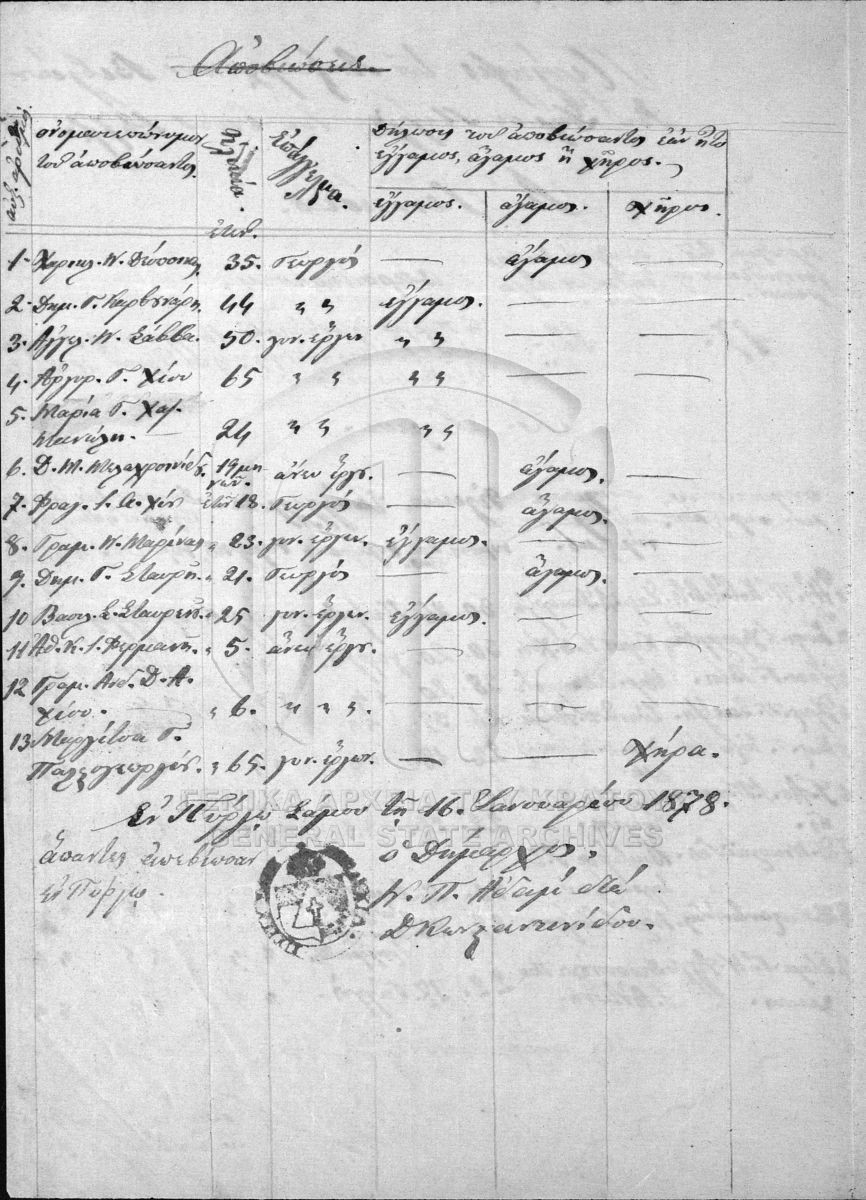 Ἀποβιώσεις.
αὔξ. ἀριθμός
ὀνοματεπώνυμον
τοῦ ἀποβιώσαντος
Ἡλικία.
Ἐπάγγελμα.
Δήλωσις τοῦ ἀποβιώσαντος ἐὰν ἦτο
ἔγγαμος, ἄγαμος ἢ χῆρος.
ἔγγαμος. ἄγαμος. χῆρος.
ἐτῶν.
1 35. Γεωργός — ἄγαμος
2. Δημ. Γ. 44 " " ἔγγαμος. — —
3. Ἀγγελ. Ν. Σάββα. 50. γυν. ἔργων " " — —
4. Ἀργυρ. Γ. Χίου 65 " " " " — —
5. Μαρία Γ. Χατ.
Μανώλη. — 24 " " " "
6. Δ. Μ. 19 μη
νῶν. ἄνευ ἔργ. — ἄγαμος. —
7. Φραγ. ἐτῶν 18. Γεωργός — ἄγαμος. —
8. Γραμ. Ν. Μαρίνας " 23. γυν. ἔργων. ἔγγαμος. — —
9. Δημ. Γ. Σταυρ " 21. Γεωργός — ἄγαμος. —
10 Βασιλ. Σ. " 25 γυν. ἔργων. ἔγγαμος. — —
11 Ἀθ. Κ. Ι. " 5. ἄνευ ἔργ. — — —
12 Γραμ. Ἀνδ. Δ. Α.
Χίου. " 6. " " " — — —
13. Μαργίτσα Γ.
Παλαιογεωργοῦ. " 65. γυν. ἔργων. — — χήρα.
Ἐν Πύργῳ Σάμου τῇ 16. Ἰανουαρίου 1878.
ΓΕΝΙΚΑ ΑΡΧΕΙΑ ΤΟΥ ΚΡΑΤΟΥΣ
GENERAL STATE ARCHIVES
ἅπαντες ἀπεβίωσαν
ἐν Πύργῳ.
ὁ Δήμαρχος,
Ν. Π.
Δ Κωνσταντινίδου.